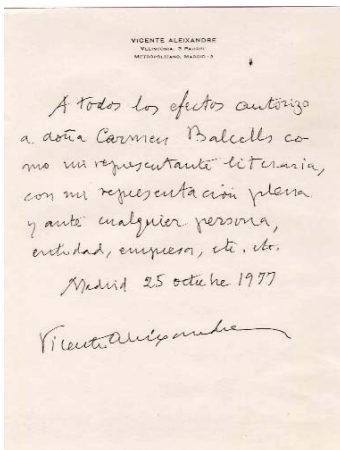 VICENTE ALEIXANDRE
VELINTONIA, 3 PARQUE
METROPOLITANO, MADRID-3
A todos los efectos autorizo
a doña Carmen Balcells co
mo mi representante literaria,
con mi representación plena
y ante cualquier persona,
entidad, empresa, etc. etc.
Madrid 25 octubre 1977
Vicente Aleixandre